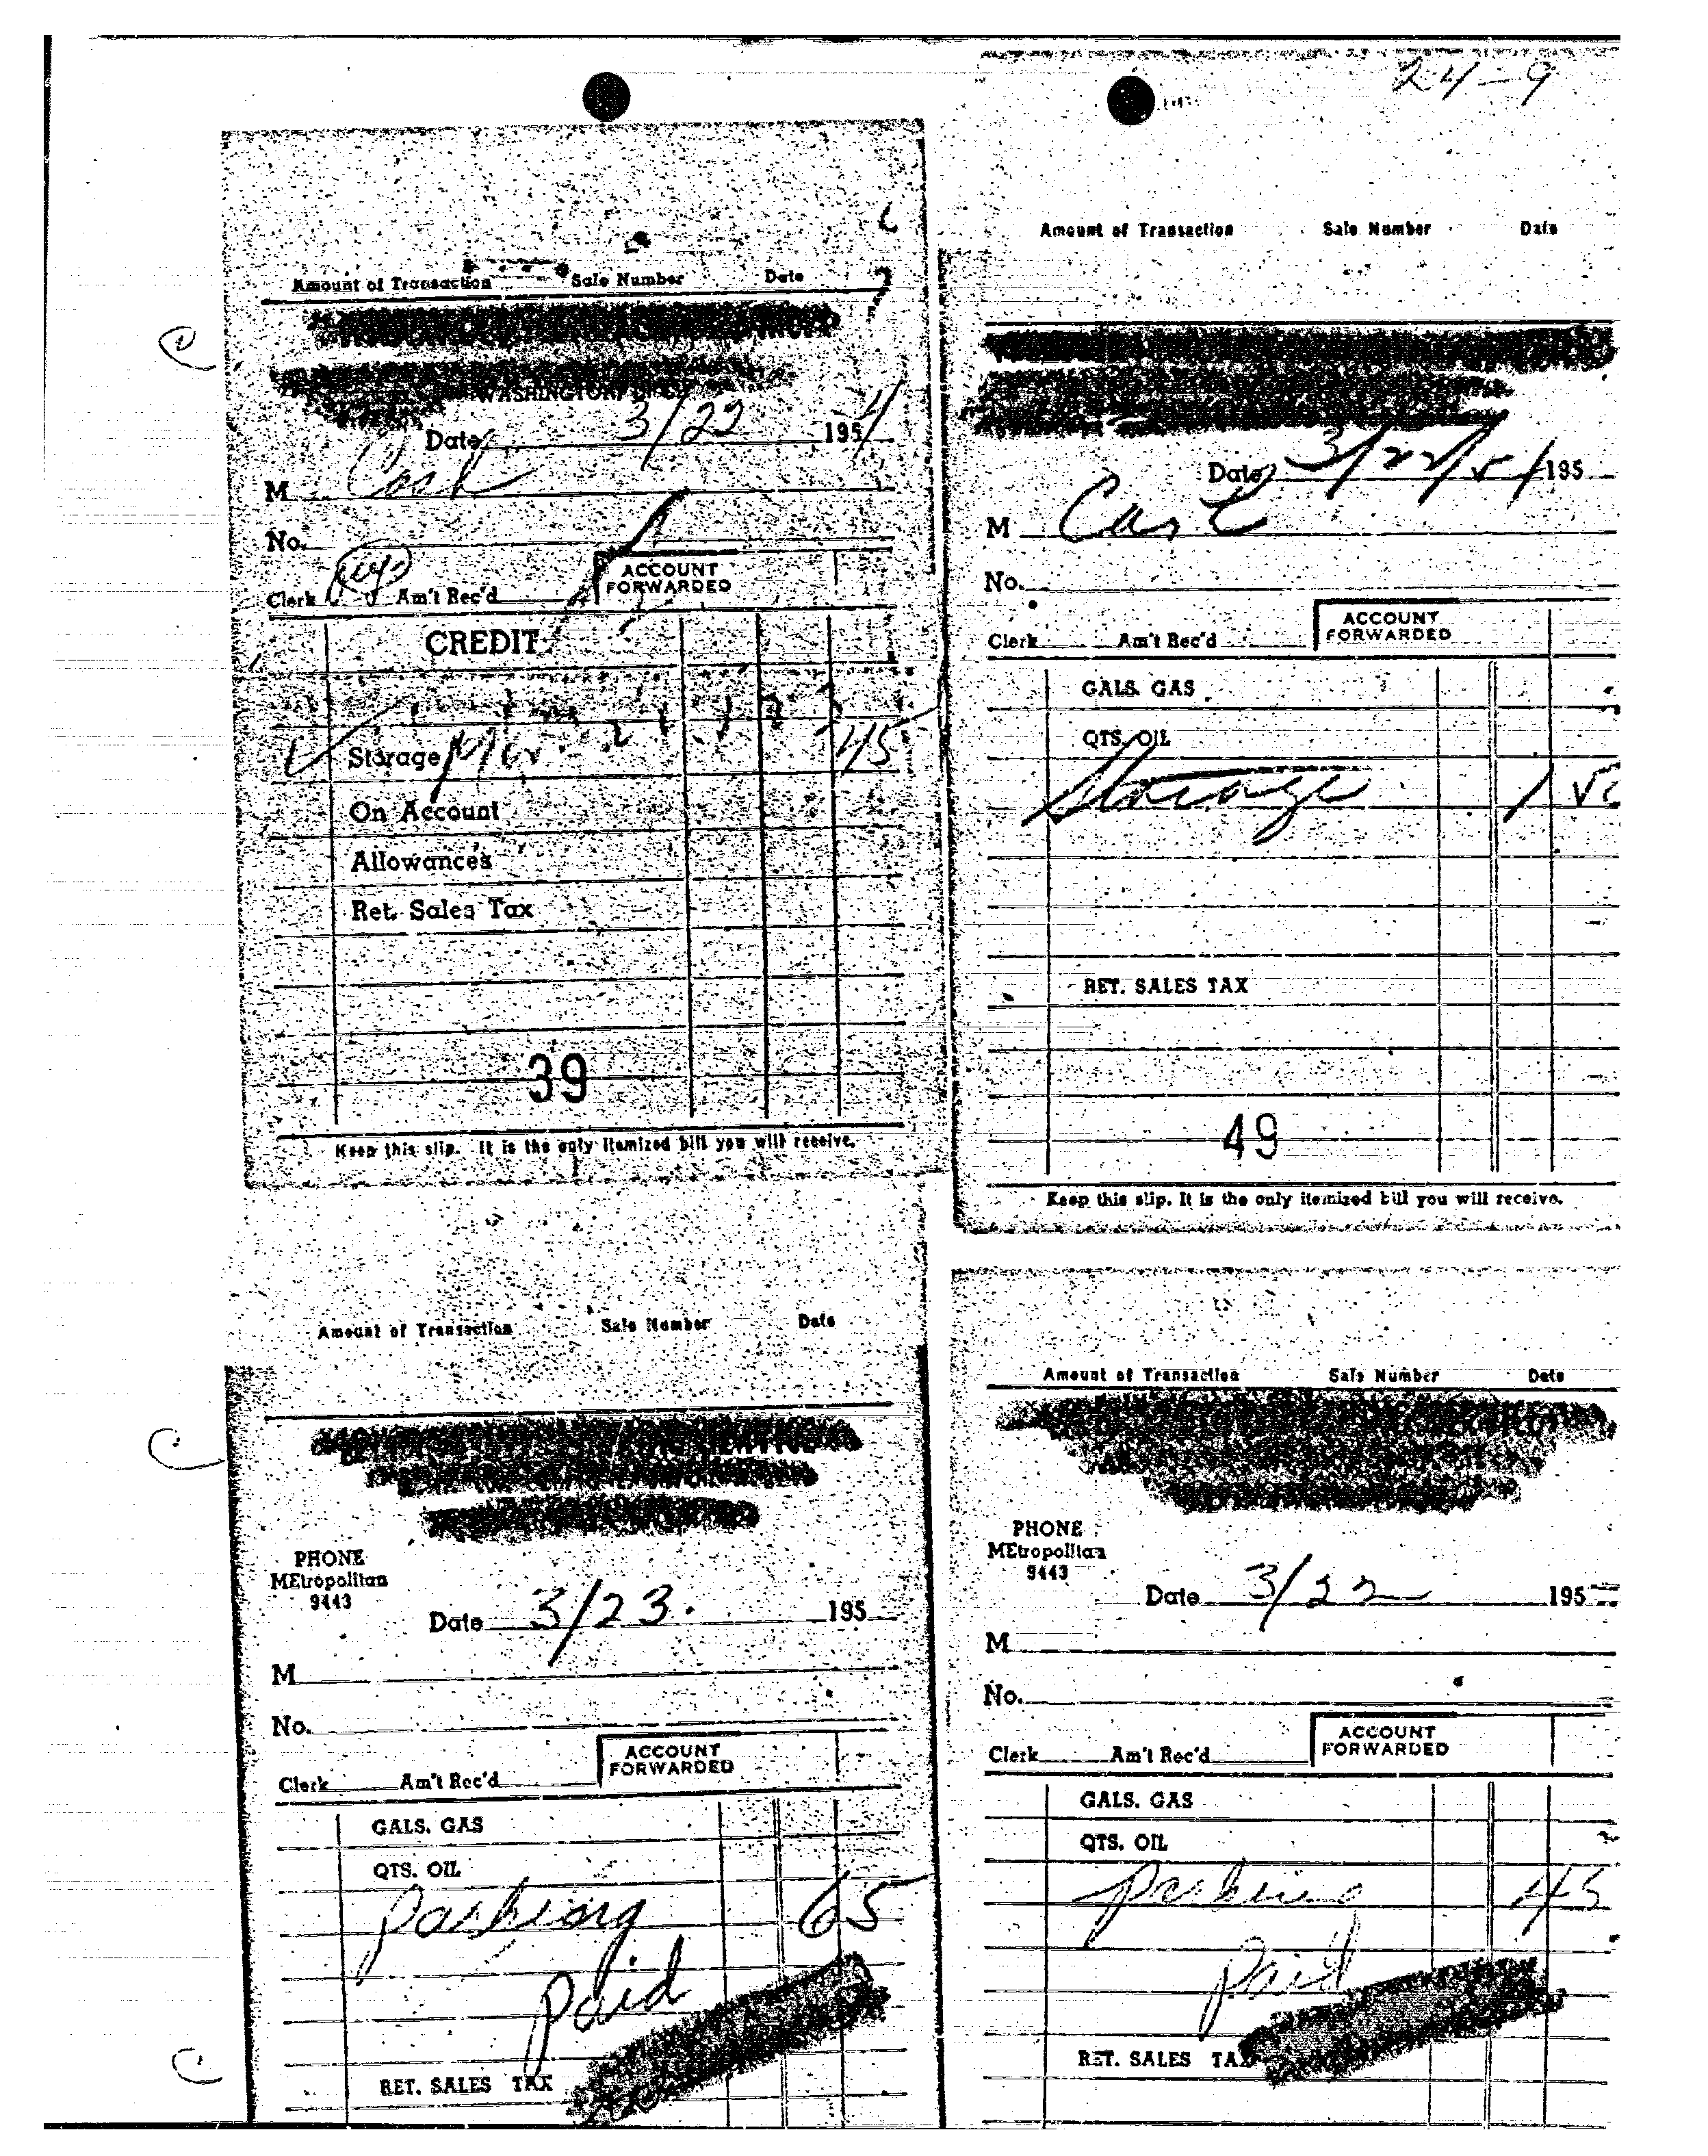 24-9
Amount of Transaction Sale Number Date
WASHINGTON
Date 3/22 1954
M Cash
No.
Clerk Am't Rec'd ACCOUNT FORWARDED
CREDIT
Storage 45
On Account
Allowances
Ret. Sales Tax
39
Keep this slip. It is the only itemized bill you will receive.
Amount of Transaction Sale Number Date
Date 3/22/54 195
M Cash
No.
Clerk Am't Rec'd ACCOUNT FORWARDED
GALS. GAS
QTS. OIL
Storage 1
RET. SALES TAX
49
Keep this slip. It is the only itemized bill you will receive.
Amount of Transaction Sale Number Date
PHONE
MEtropolitan
9443
Date 3/23. 195
M
No.
Clerk Am't Rec'd ACCOUNT FORWARDED
GALS. GAS
QTS. OIL
Parking 65
paid
RET. SALES TAX
Amount of Transaction Sale Number Date
PHONE
MEtropolitan
9443
Date 3/22 195
M
No.
Clerk Am't Rec'd ACCOUNT FORWARDED
GALS. GAS
QTS. OIL
Parking 45
Paid
RET. SALES TAX